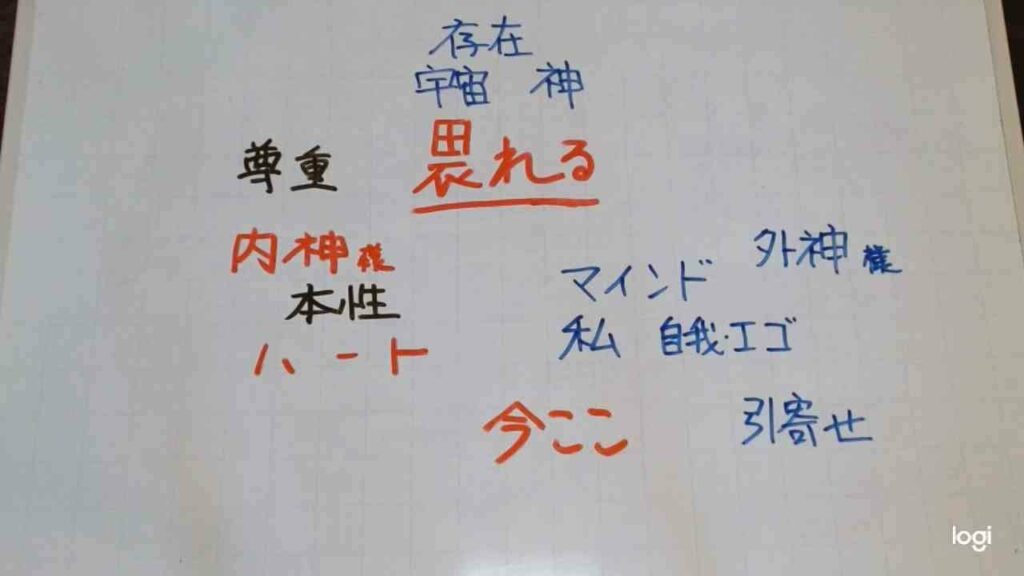 存在
宇宙 神
尊重 畏れる
内神様
外神様
本性
マインド
ハート
私 自我・エゴ
今ここ
引寄せ
logi